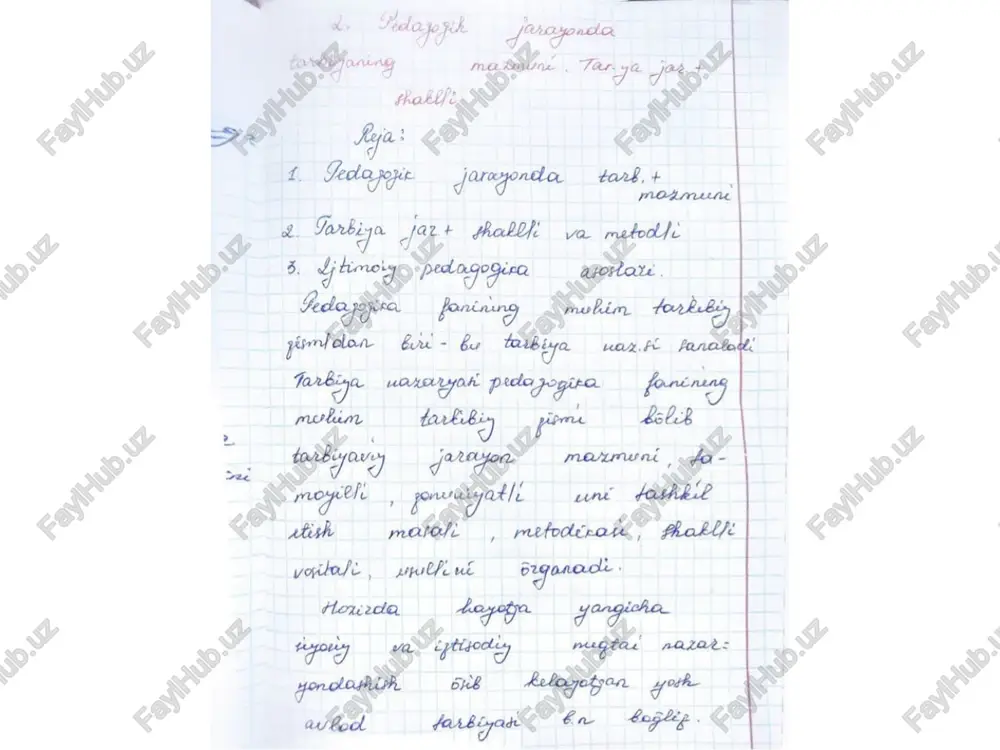 2. Pedagogik jarayonda
tarbiyaning mazmuni. Tar-ya jar +
shaklli
Reja:
1. Pedagogik jarayonda tarb. +
mazmuni
2. Tarbiya jar + shaklli va metodli
3. Ijtimoiy pedagogika asoslari.
Pedagogika fanining muhim tarkibiy
qismidan biri - bu tarbiya naz.si sanaladi
Tarbiya nazaryasi pedagogika fanining
muhim tarkibiy qismi bõlib
tarbiyaviy jarayon mazmuni, ta-
moyilli, qonuniyatli uni tashkil
etish masali, metodikasi, shaklli
vositali, usullini õrganadi.
Hozirda hayotga yangicha
siyosiy va iqtisodiy nuqtai nazar=
yondashish õsib kelayotgan yosh
avlod tarbiyasi b.n bog̃liq.
FaylHub.uz